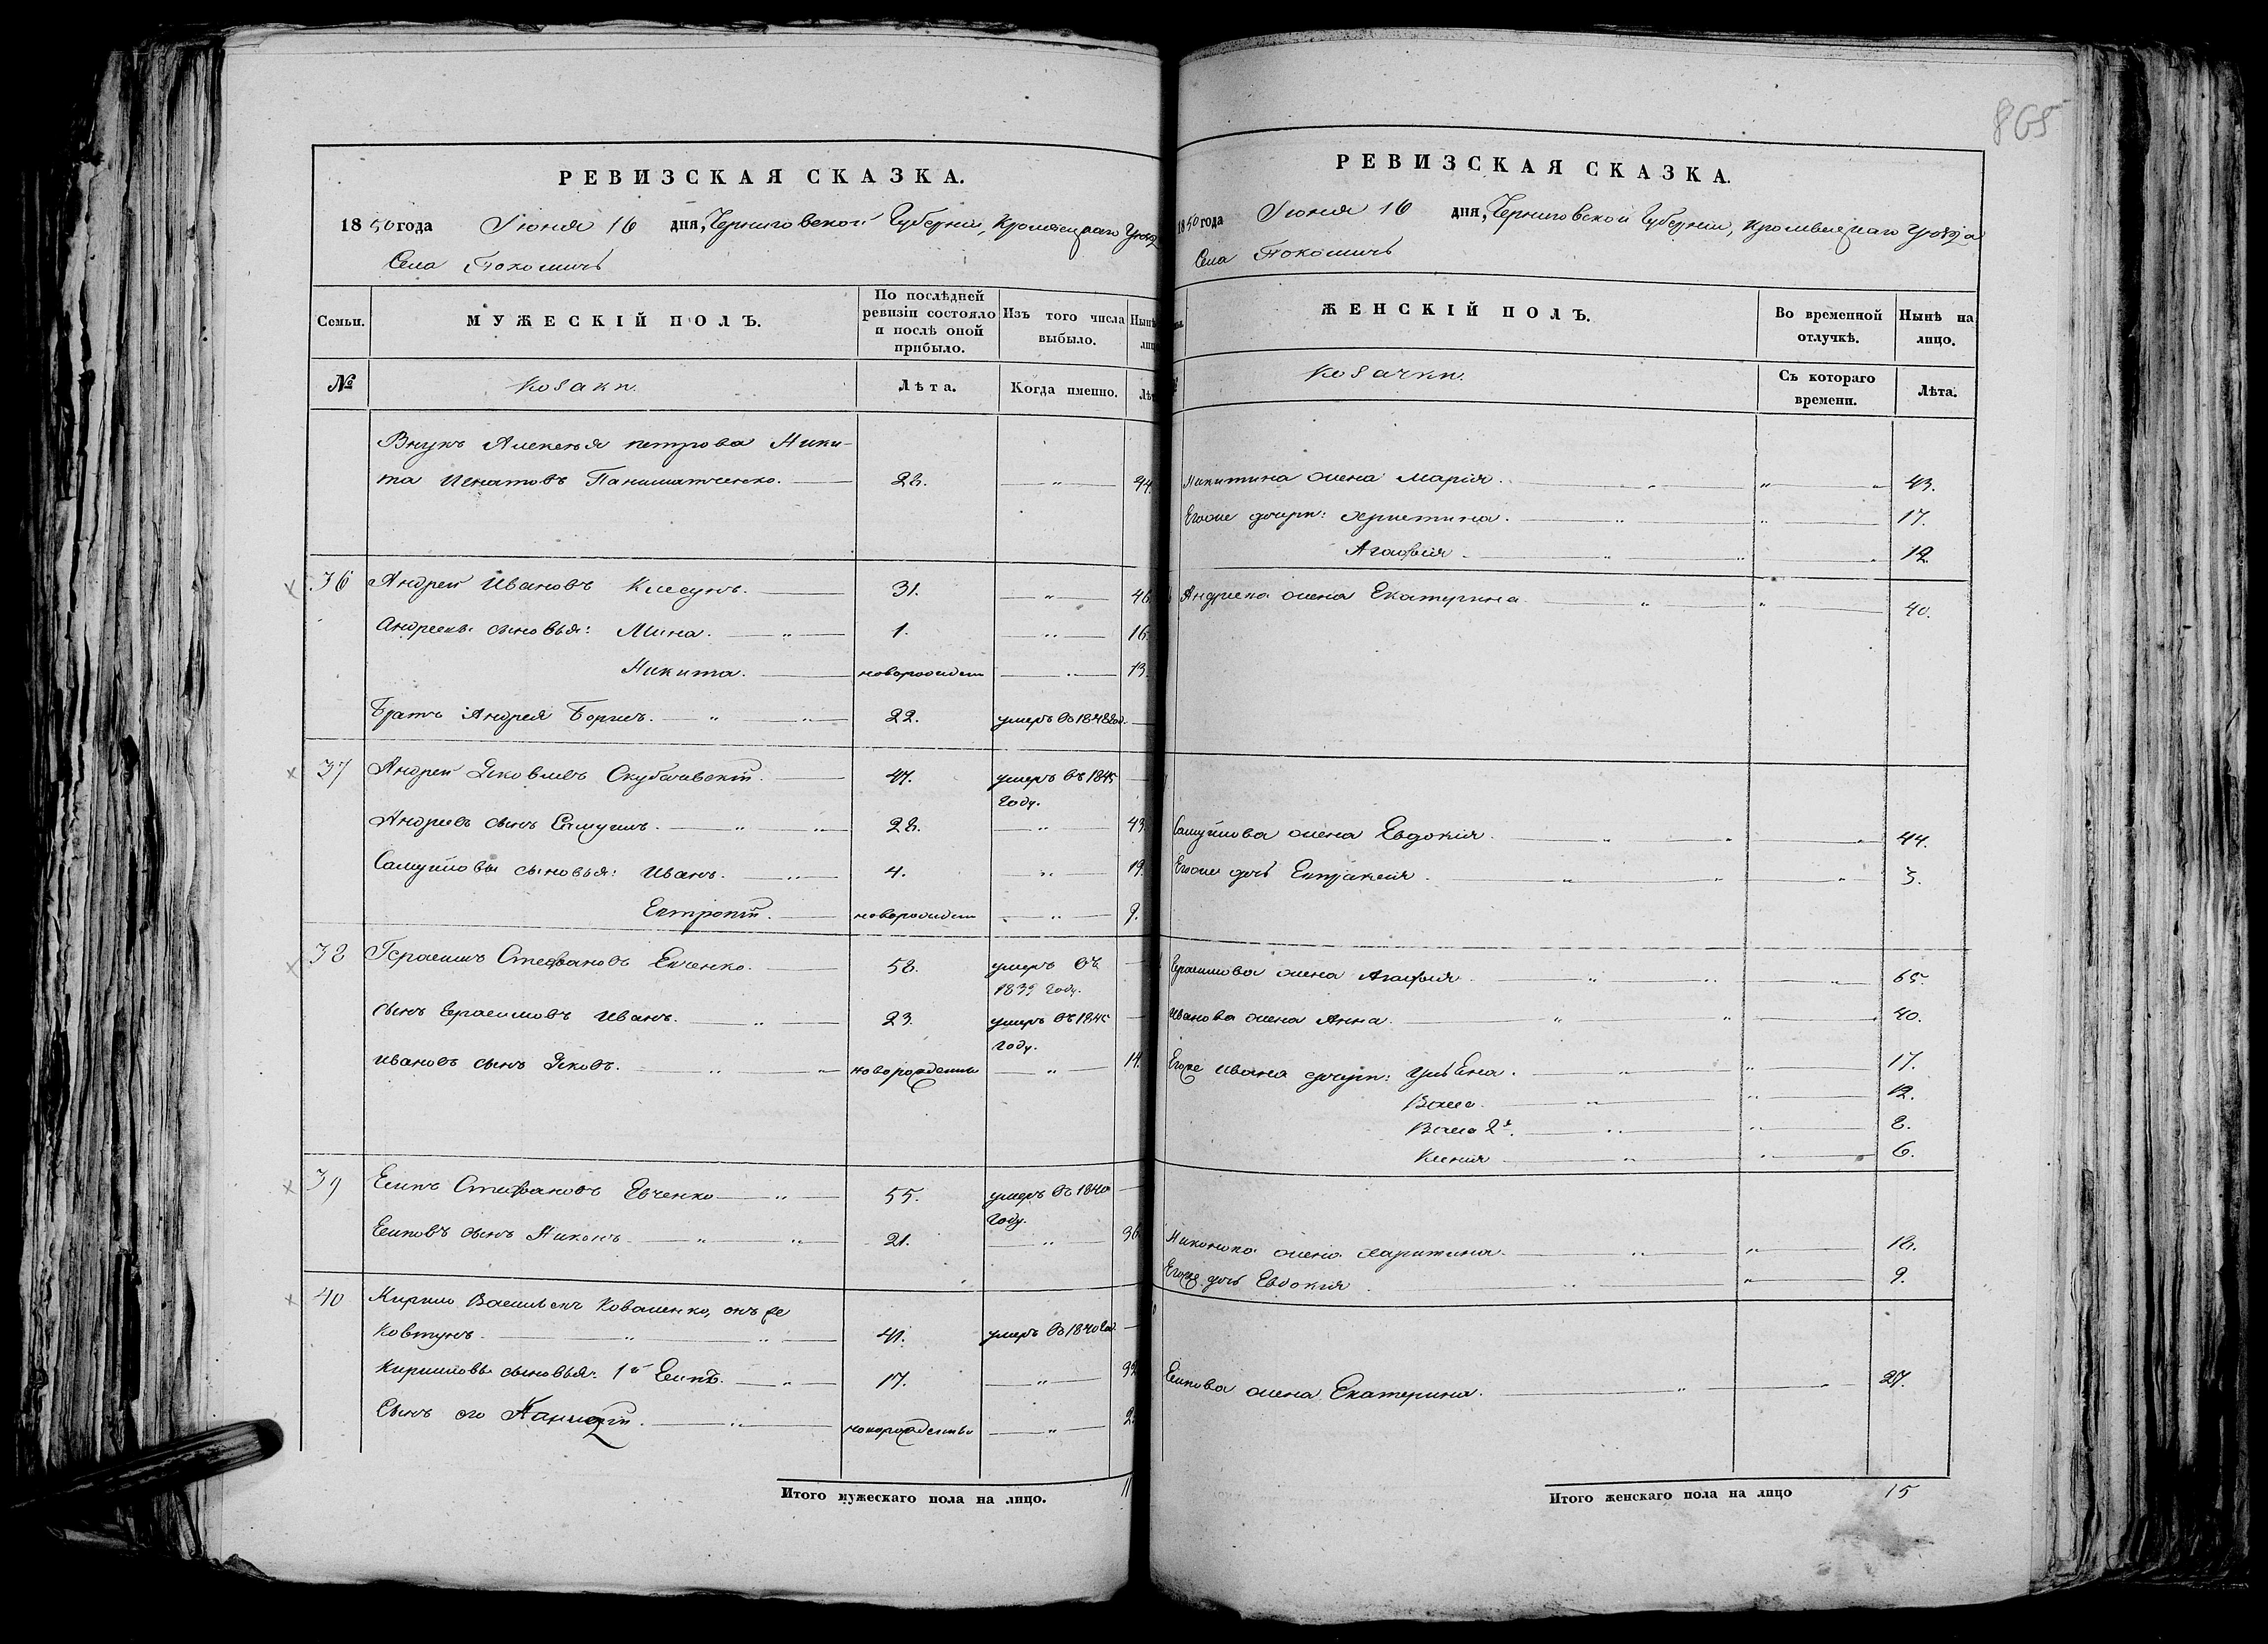 865
РЕВИЗСКАЯ СКАЗКА.
1850 года Июня 16 дня, Черниговской Губерніи, Кролевецкаго Уѣзда
Села Покошичь
Семьи. МУЖЕСКІЙ ПОЛЪ. По послѣдней ревизіи состояло и послѣ оной прибыло. Изъ того числа выбыло. Нынѣ лицо
№ Козаки. Лѣта. Когда именно. Лѣт
Внукъ Алексея петрова Ники-
та Игнатовъ 28. — " — 44.
36 Андрей Ивановъ 31. — " — 46.
Андреевы сыновья: Мина. — " — 1. — " — 16.
Никита. новорожден — " — 13.
Братъ Андрея Борисъ. — " — 22. умеръ въ 1848 год. —
37 Андрей Яковлевъ 47. умеръ въ 1845 —
году.
Андреевъ сынъ Самуилъ. — " — 28. — " — 43.
Самуйловы сыновья: Иванъ. — " — 4. " 19.
Евтропій. новорожден — " — 9.
38 Герасимъ Стефановъ Евченко. 58. умеръ въ —
1839 году.
сынъ Герасимовъ Иванъ. — " — 23. умеръ въ 1845 —
году.
ивановъ сынъ Яковъ. — " — новорожденны — " — 14.
39 Есипъ Стефановъ Евченко — " — 55. умеръ въ 1840 —
году.
Есиповъ сынъ Никонъ — " — 21. — " — 36
40 Кирило Васильевъ Коваленко, онъ же
Ковтунъ. — " — 41. умеръ въ 1840 год. —
Кириловы сыновья: 1й Есипъ. — " — 17. — " — 32
Сынъ его — " — новорожденны — " — 2
Итого мужескаго пола на лицо. 11
РЕВИЗСКАЯ СКАЗКА.
1850 года Июня 16 дня, Черниговской Губерніи, Кролевецкаго Уѣзда
Села Покошичь
ЖЕНСКІЙ ПОЛЪ. Во временной отлучкѣ. Нынѣ на лицо.
Козачки. Съ котораго времени. Лѣта.
Никитина жена Марія. — " — 43.
Егоже дочери: Христина. — " — 17.
Агафія — " — 12.
Андреева жена Екатерина — " — 40.
Самуйлова жена Евдокія. — " — 44.
Егоже дочь Евпраксія — " — 3.
Герасимова жена Агафія — " — 65.
Иванова жена Анна. — " — 40.
Егоже ивана дочери: Ульена. — " — 17.
Васса. — " — 12.
Васса 2я. — " — 8.
Ксенія — " — 6.
Никонова жена Харитина. — " —
Егоже дочь Евдокія — " — 9.
Есипова жена Екатерина. — " — 27.
Итого женскаго пола на лицо 15